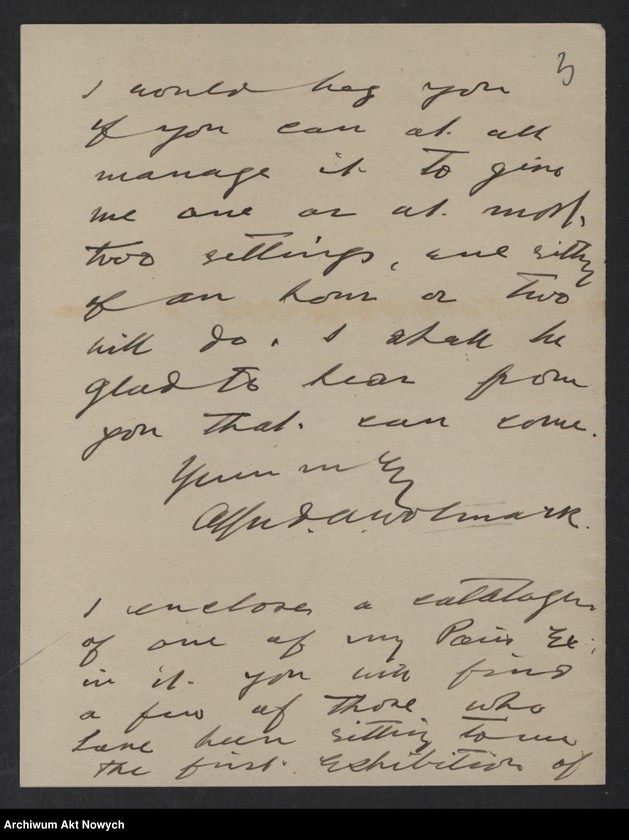 3
I would beg you
if you can at all
manage it to give
me one or at most,
two sittings, one sitting
of an hour or two
will do. I shall be
glad to hear from
you that can come.
Yours
Alfred. A. Wolmark.
I enclose a catalogue
of one of my Paris Ex:
in it you will find
a few of those who
have been sitting to me
the first exhibition of
Archiwum Akt Nowych